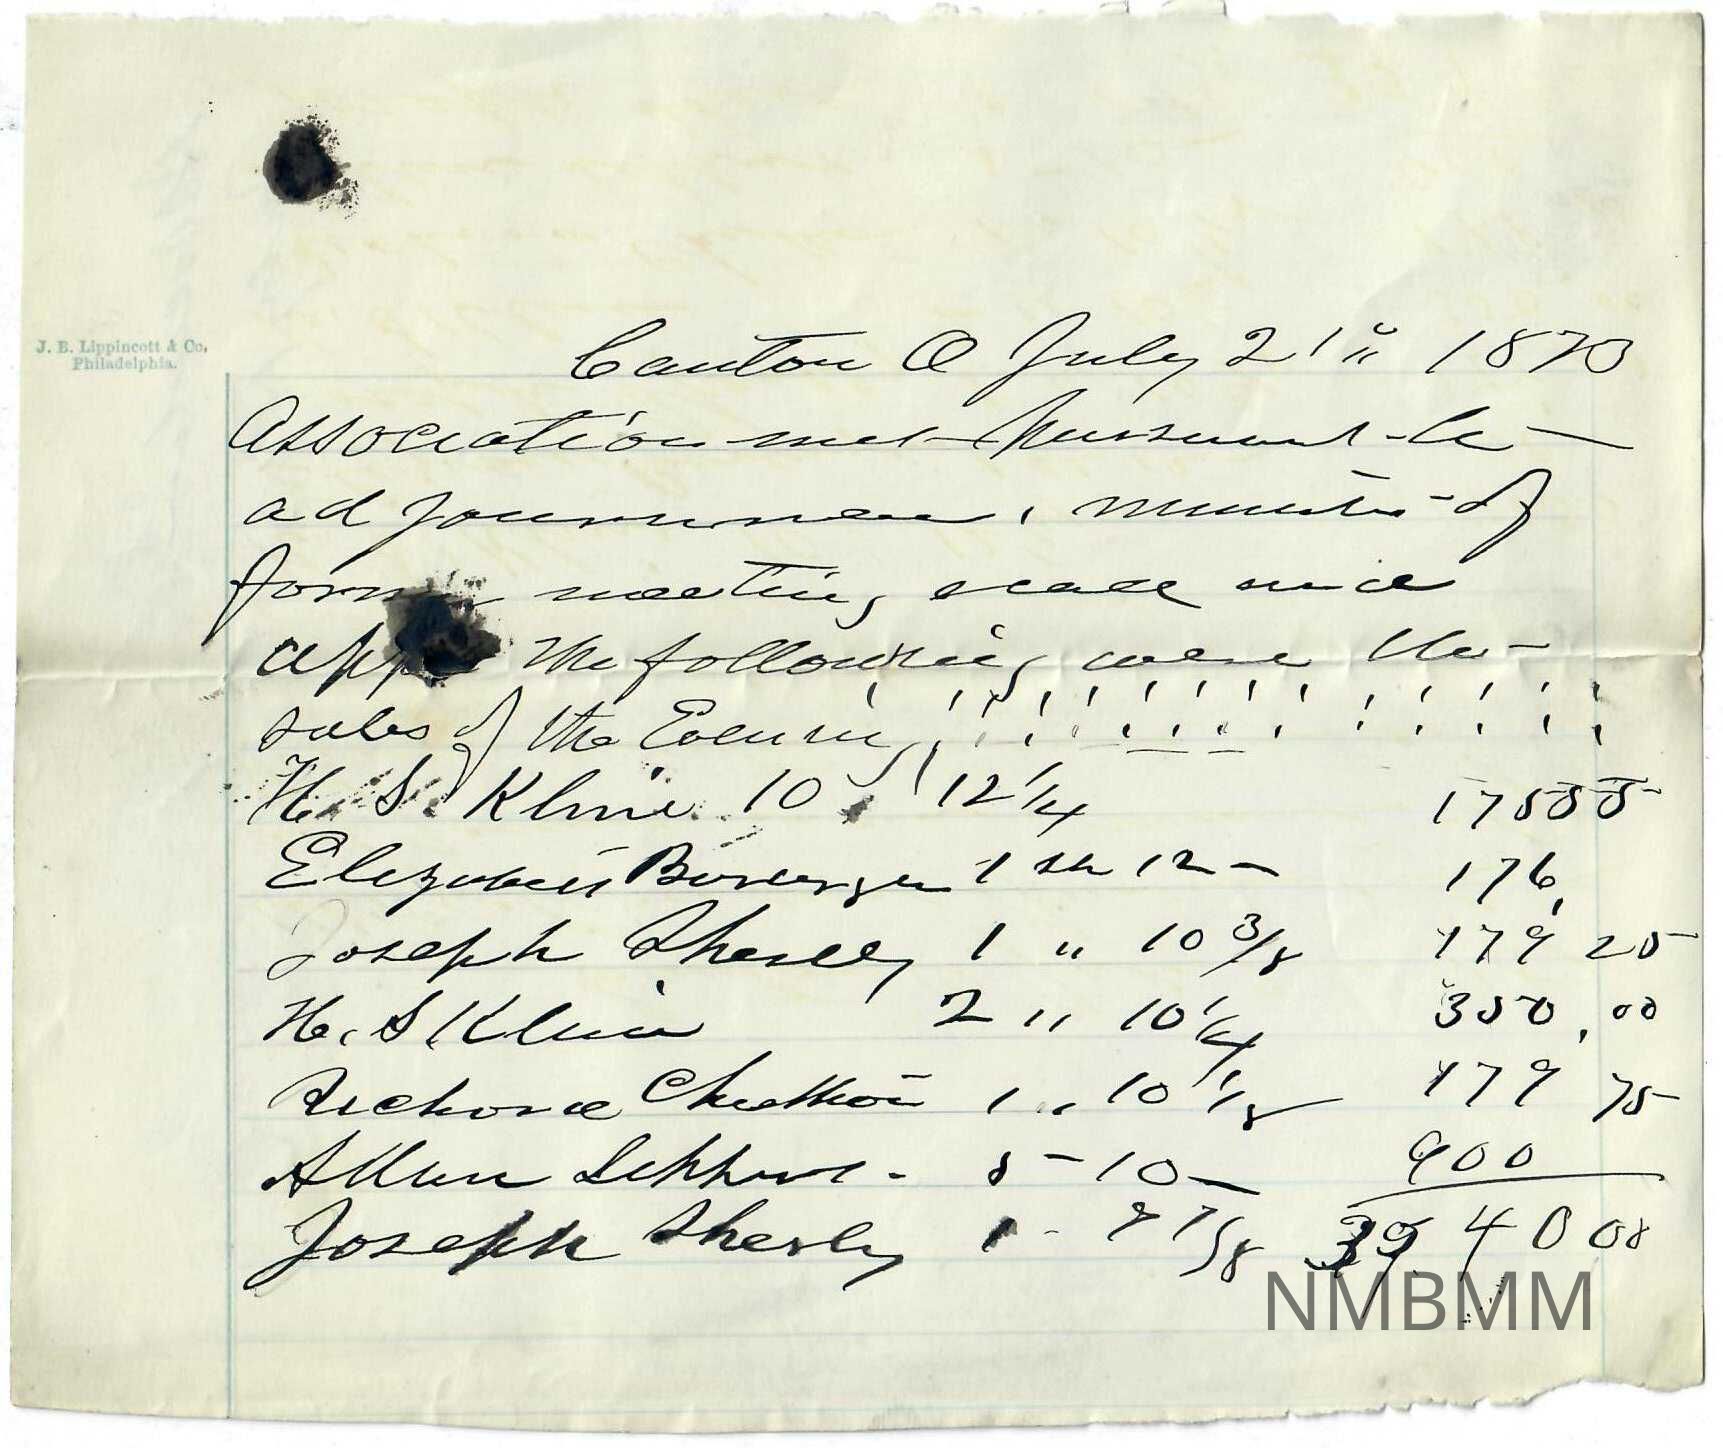 J. B. Lippincott & Co,
Philadelphia.
Canton O July 21" 1873
Association met pursuant to
adjournment, minutes of
former meeting read and
app the following were the
sales of the Evening
H. S. Kline 10 12 1/4 1755 50
Elizabeth 1 sh 12 - 176,
Joseph Sherly 1 " 10 3/8 179 25
H. S Kline 2 " 10 1/4 350.00
Richard 1 " 10 1/8 179 75
Allen 5 - 10 - 900
Joseph Sherly 1 - 9 7/8 3940 08
NMBMM